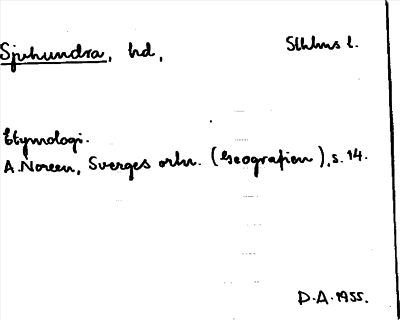 Sjuhundra, hd, Sthlms l.
Etymologi.
A. Noreen, Sveriges ortn. (Geografien), s. 14.
D.A. 1955.